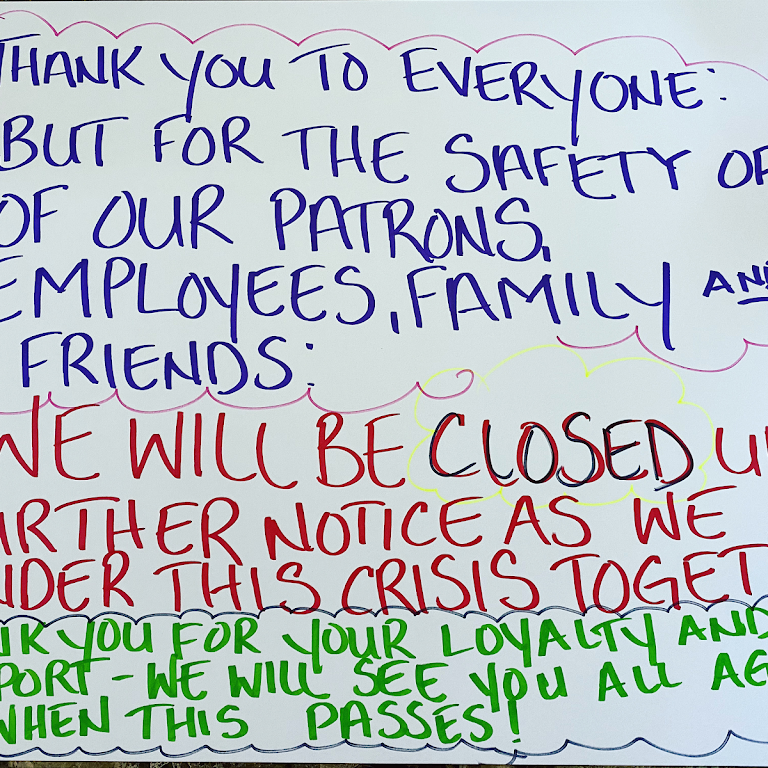 THANK YOU TO EVERYONE:
BUT FOR THE SAFETY OF
OF OUR PATRONS,
EMPLOYEES, FAMILY AND
FRIENDS:
WE WILL BE CLOSED U
URTHER NOTICE AS WE
NDER THIS CRISIS TOGET
NK YOU FOR YOUR LOYALTY AND
PORT - WE WILL SEE YOU ALL AG
WHEN THIS PASSES!